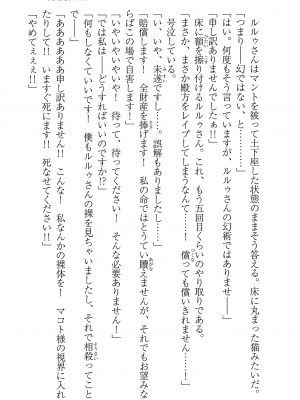 ルルゥさんはマントを被って土下座した状態のままそう答える。床に丸まった猫みたいだ。
「つまり――幻ではない、と………」
「はい。何度もそう言っていますが、ルルゥさんの幻術ではありません――」
「申し訳ありませんでしたぁ!!」
床に額を擦り付けるルルゥさん。これ、もう五回目くらいのやり取りである。
「まさか、まさか殿方をレイプしてしまうなんて……！　償っても償いきれません……」
号泣している。
「い、いや、未遂ですし……。誤解もありましたし……」
「賠償します！　全財産を捧げます！　私の命ではとうてい贖えませんが、それでもお望みな
らばこの場で自害します！」
「いやいやいやいや！　待って、待ってください！　そんな必要ありません！」
「では私は――どうすればいいのですか!?」
「何もしなくていいです！　僕もルルゥさんの裸を見ちゃいましたし、それで相殺ってこと
「あああああああ申し訳ありません!!　こんな！　私なんかの裸体を！　マコト様の視界に入れ
てしまって!!　いますぐ死にます!!　死なせてください!!」
「やめてぇぇぇ!!」